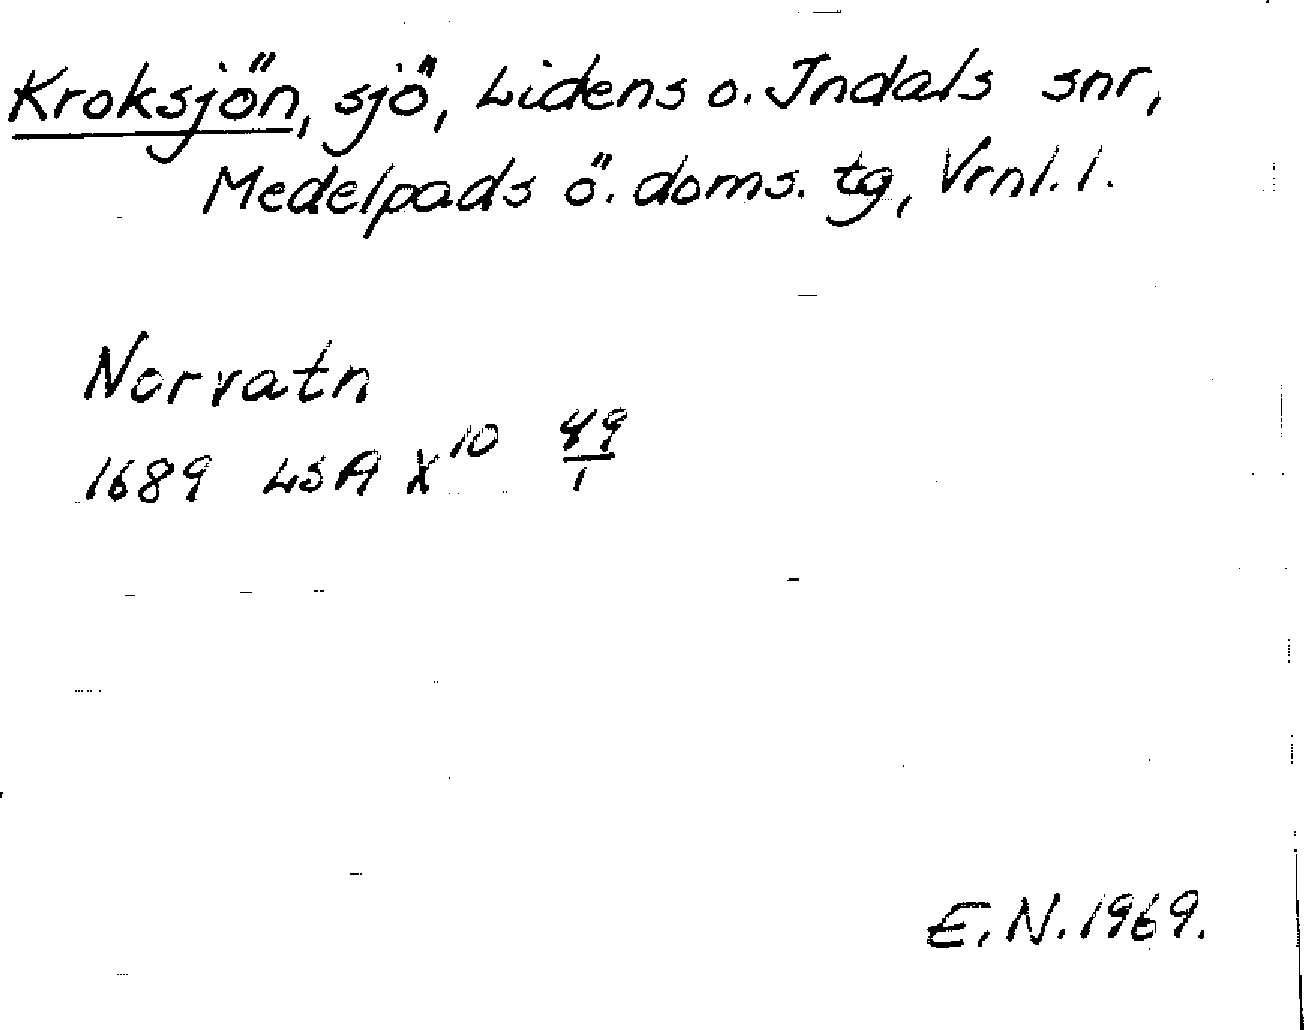 Kroksjön, sjö, Lidens o. Indals snr,
Medelpads ö. doms. tg, Vrnl. l.
Norvatn
1689 LSA X¹⁰ 49/1
E. N. 1969.